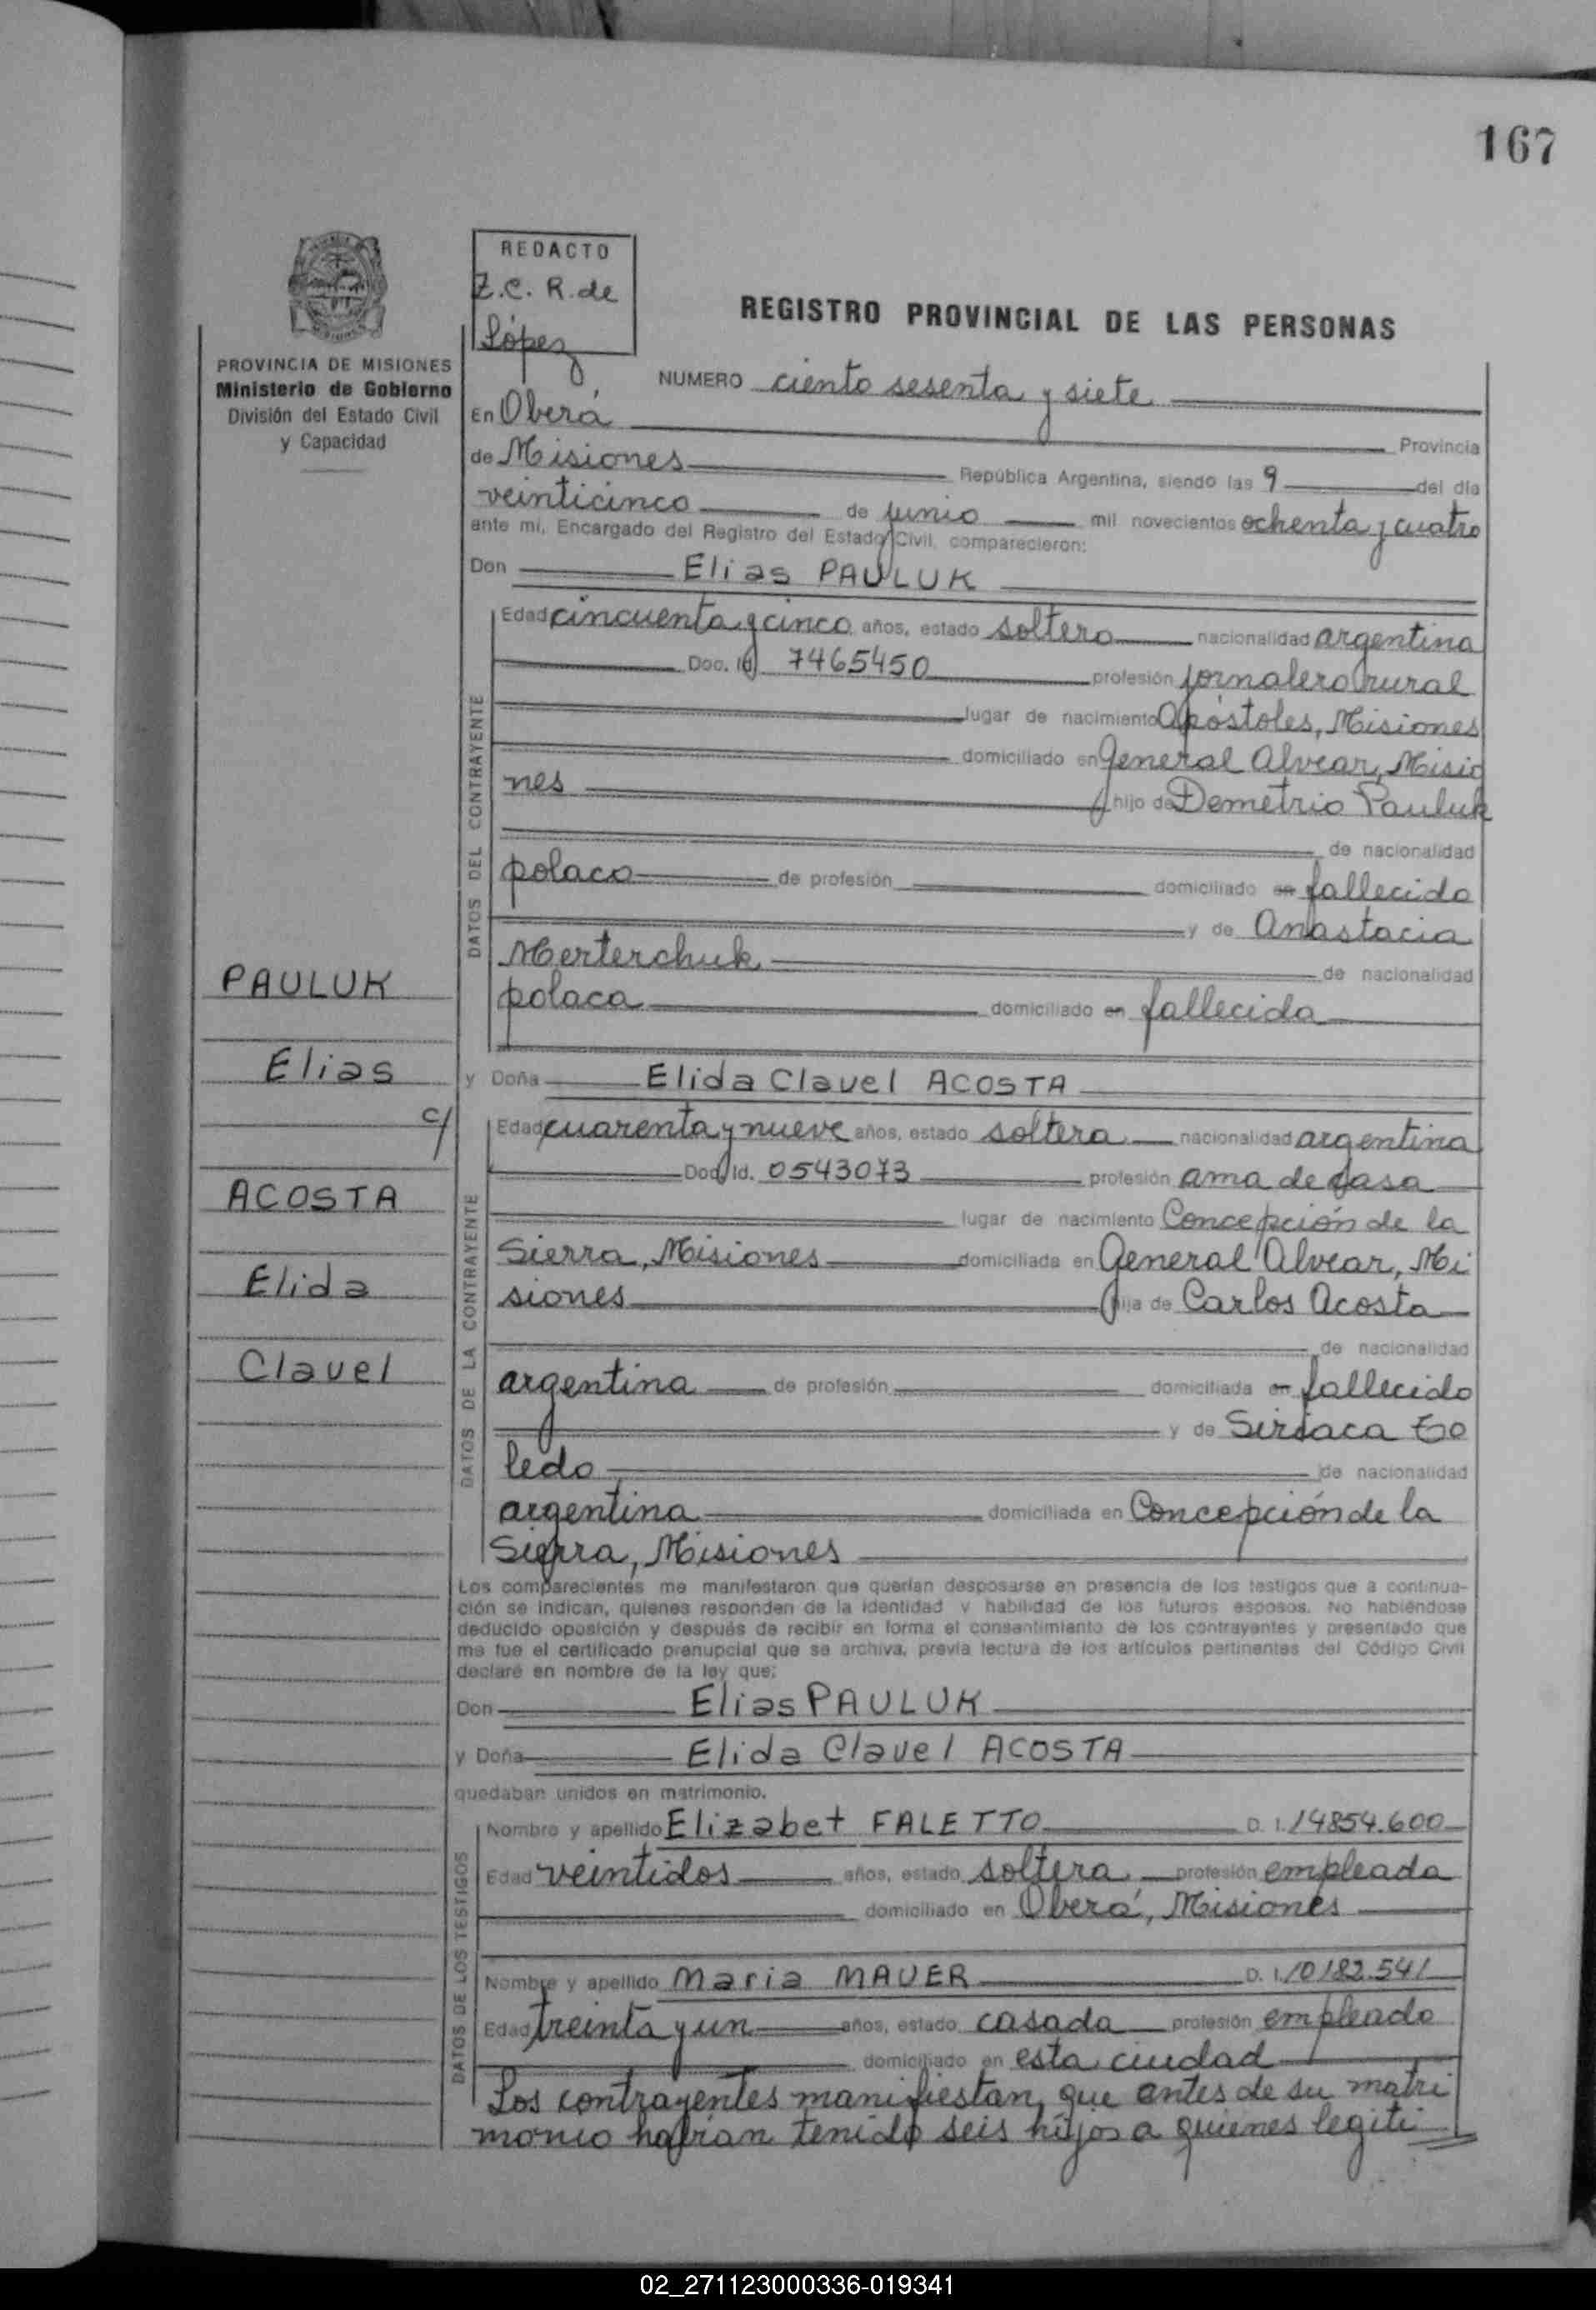 167
REDACTO
Z.C. R. de
López
REGISTRO PROVINCIAL DE LAS PERSONAS
PROVINCIA DE MISIONES
Ministerio de Gobierno
División del Estado Civil
y Capacidad
NUMERO ciento sesenta y siete
En Oberá
Provincia
de Misiones República Argentina, siendo las 9 del día
veinticinco de junio mil novecientos ochenta y cuatro
ante mí, Encargado del Registro del Estado Civil, comparecieron:
Don Elias PAULUK
DATOS DEL CONTRAYENTE
Edad cincuenta y cinco años, estado soltero nacionalidad argentina
Doc. Id. 7465450 profesión jornalero rural
lugar de nacimiento Apóstoles, Misiones
domiciliado en General Alvear, Misio
nes hijo de Demetrio Pauluk
de nacionalidad
polaco de profesión domiciliado en fallecido
y de Anastacia
Merterchuk de nacionalidad
polaca domiciliado en fallecida
PAULUK
Elias
c/
ACOSTA
Elida
Clavel
y Doña Elida Clavel ACOSTA
DATOS DE LA CONTRAYENTE
Edad cuarenta y nueve años, estado soltera nacionalidad argentina
Doc. Id. 0543073 profesión ama de casa
lugar de nacimiento Concepción de la
Sierra, Misiones domiciliada en General Alvear, Mi
siones hija de Carlos Acosta
de nacionalidad
argentina de profesión domiciliada en fallecido
y de Siriaca To
ledo de nacionalidad
argentina domiciliada en Concepción de la
Sierra, Misiones
Los comparecientes me manifestaron que querían desposarse en presencia de los testigos que a continua-
ción se indican, quienes responden de la identidad y habilidad de los futuros esposos. No habiéndose
deducido oposición y después de recibir en forma el consentimiento de los contrayentes y presentado que
me fue el certificado prenupcial que se archiva, previa lectura de los artículos pertinentes del Código Civil
declaré en nombre de la ley que:
Don Elias PAULUK
y Doña Elida Clavel ACOSTA
quedaban unidos en matrimonio.
DATOS DE LOS TESTIGOS
Nombre y apellido Elizabet FALETTO D. I. 14854.600
Edad veintidos años, estado soltera profesión empleada
domiciliado en Oberá, Misiones
Nombre y apellido Maria MAUER D. I. 10182.541
Edad treinta y un años, estado casada profesión empleado
domiciliado en esta ciudad
Los contrayentes manifiestan, que antes de su matri
monio habían tenido seis hijos a quienes legiti
02_271123000336-019341